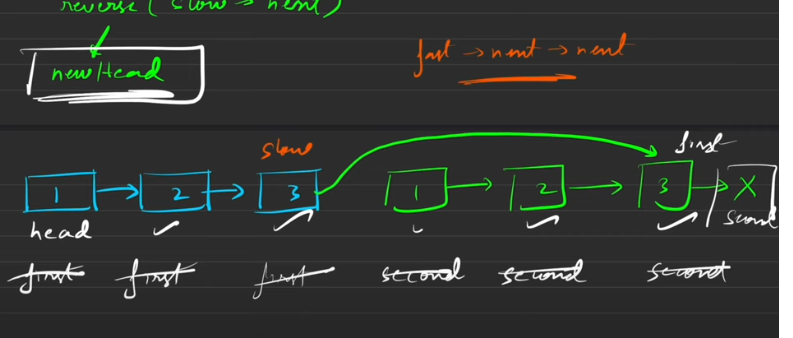 reverse ( slow → next )
newHead
fast → next → next
slow
first
1 → 2 → 3
1 → 2 → 3 → X
head
second
first first first second second second